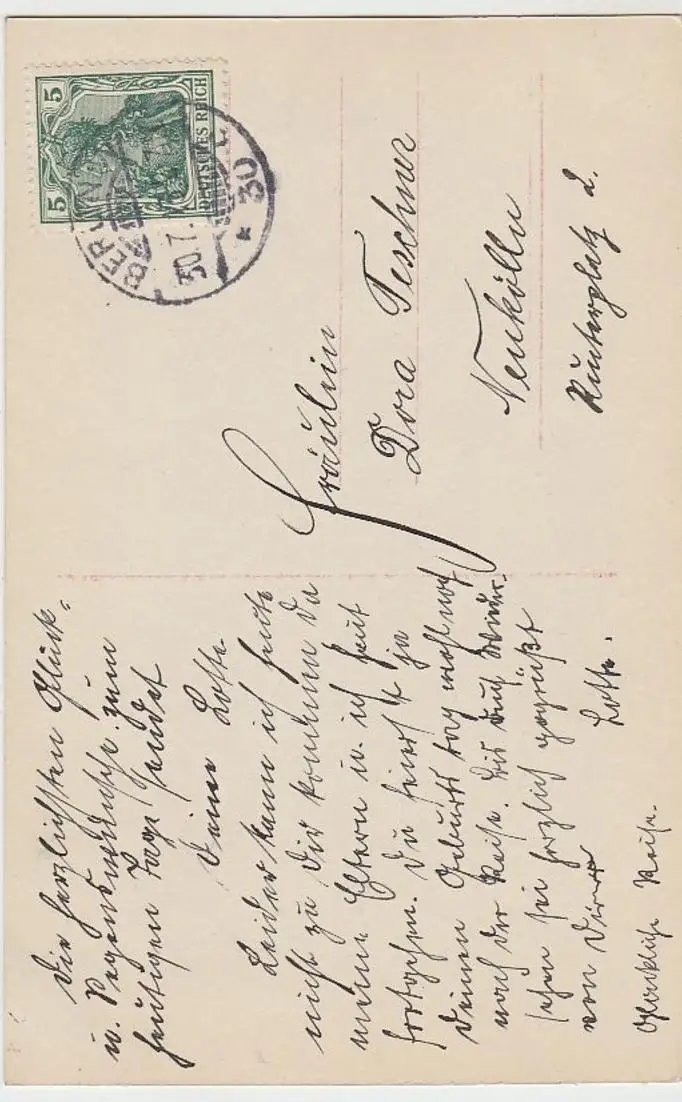 5 5
DEUTSCHES REICH
BERLIN
30.7.
* 30
Fräulein
Dora Teschner
Neukölln
2.
Die herzlichsten Glück-
u. Segenswünsche zum
heutigen Tage sendet
Deine Lotte
Leider kann ich heute
nicht zu Dir kommen da
meine Eltern u. ich heut
fortgehen. Du feierst ja
Deinen Geburtstag wohl noch
nach der Reise. Bis auf Wieder-
sehen sei herzlich gegrüßt
von Deiner Lotte.
Glückliche Reise.